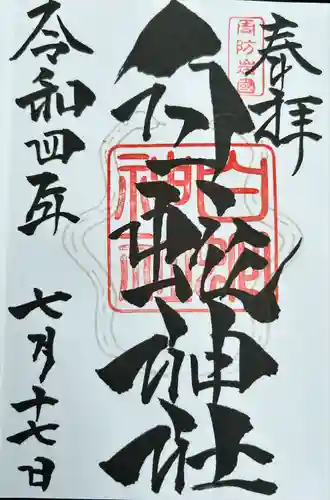 奉拝
周防岩國
白蛇神社
白蛇神社
令和四年
七月十七日